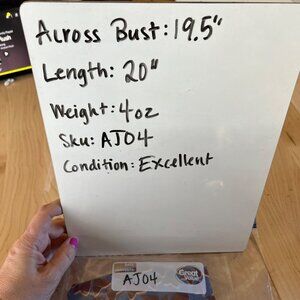 Across Bust: 19.5"
Length: 20"
Weight: 4oz
Sku: AJ04
Condition: Excellent
AJ04
Great Value